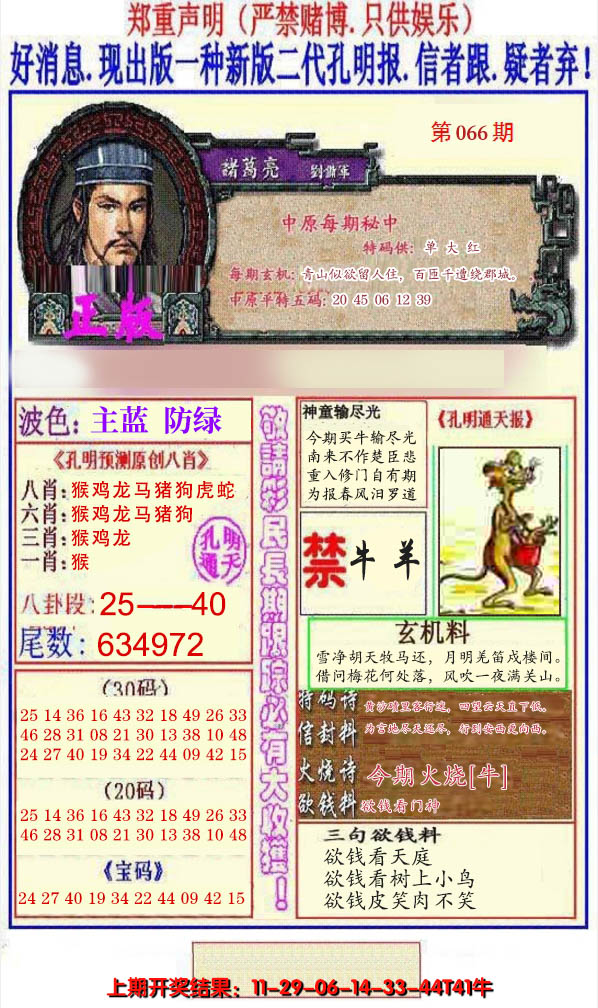 郑重声明（严禁赌博.只供娱乐）
好消息.现出版一种新版二代孔明报.信者跟.疑者弃!
第066期
諸葛亮
中原每期秘中
特码供: 单 大 红
每期玄机: 青山似欲留人住，百匝千遭绕郡城。
中原平特五码: 20 45 06 12 39
正版
波色: 主蓝 防绿
《孔明预测原创八肖》
八肖: 猴鸡龙马猪狗虎蛇
六肖: 猴鸡龙马猪狗
三肖: 猴鸡龙
一肖: 猴
孔明
通天
八卦段: 25——40
尾数: 634972
（30码）
25 14 36 16 43 32 18 49 26 33
46 28 31 08 21 30 13 38 10 48
24 27 40 19 34 22 44 09 42 15
（20码）
25 14 36 16 43 32 18 49 26 33
46 28 31 08 21 30 13 38 10 48
《宝码》
24 27 40 19 34 22 44 09 42 15
敬請彩民長期跟踪必有大收獲！
神童输尽光
今期买牛输尽光
南来不作楚臣悲
重入修门自有期
为报春风汨罗道
《孔明通天报》
禁 牛 羊
玄机料
雪净胡天牧马还，月明羌笛戍楼间。
借问梅花何处落，风吹一夜满关山。
特码诗
黄沙碛里客行迷，四望云天直下低。
信封料
为言地尽天还尽，行到安西更向西。
火烧诗
今期火烧[牛]
欲钱料
欲钱看门神
三句欲钱料
欲钱看天庭
欲钱看树上小鸟
欲钱皮笑肉不笑
上期开奖结果：11-29-06-14-33-44T41牛